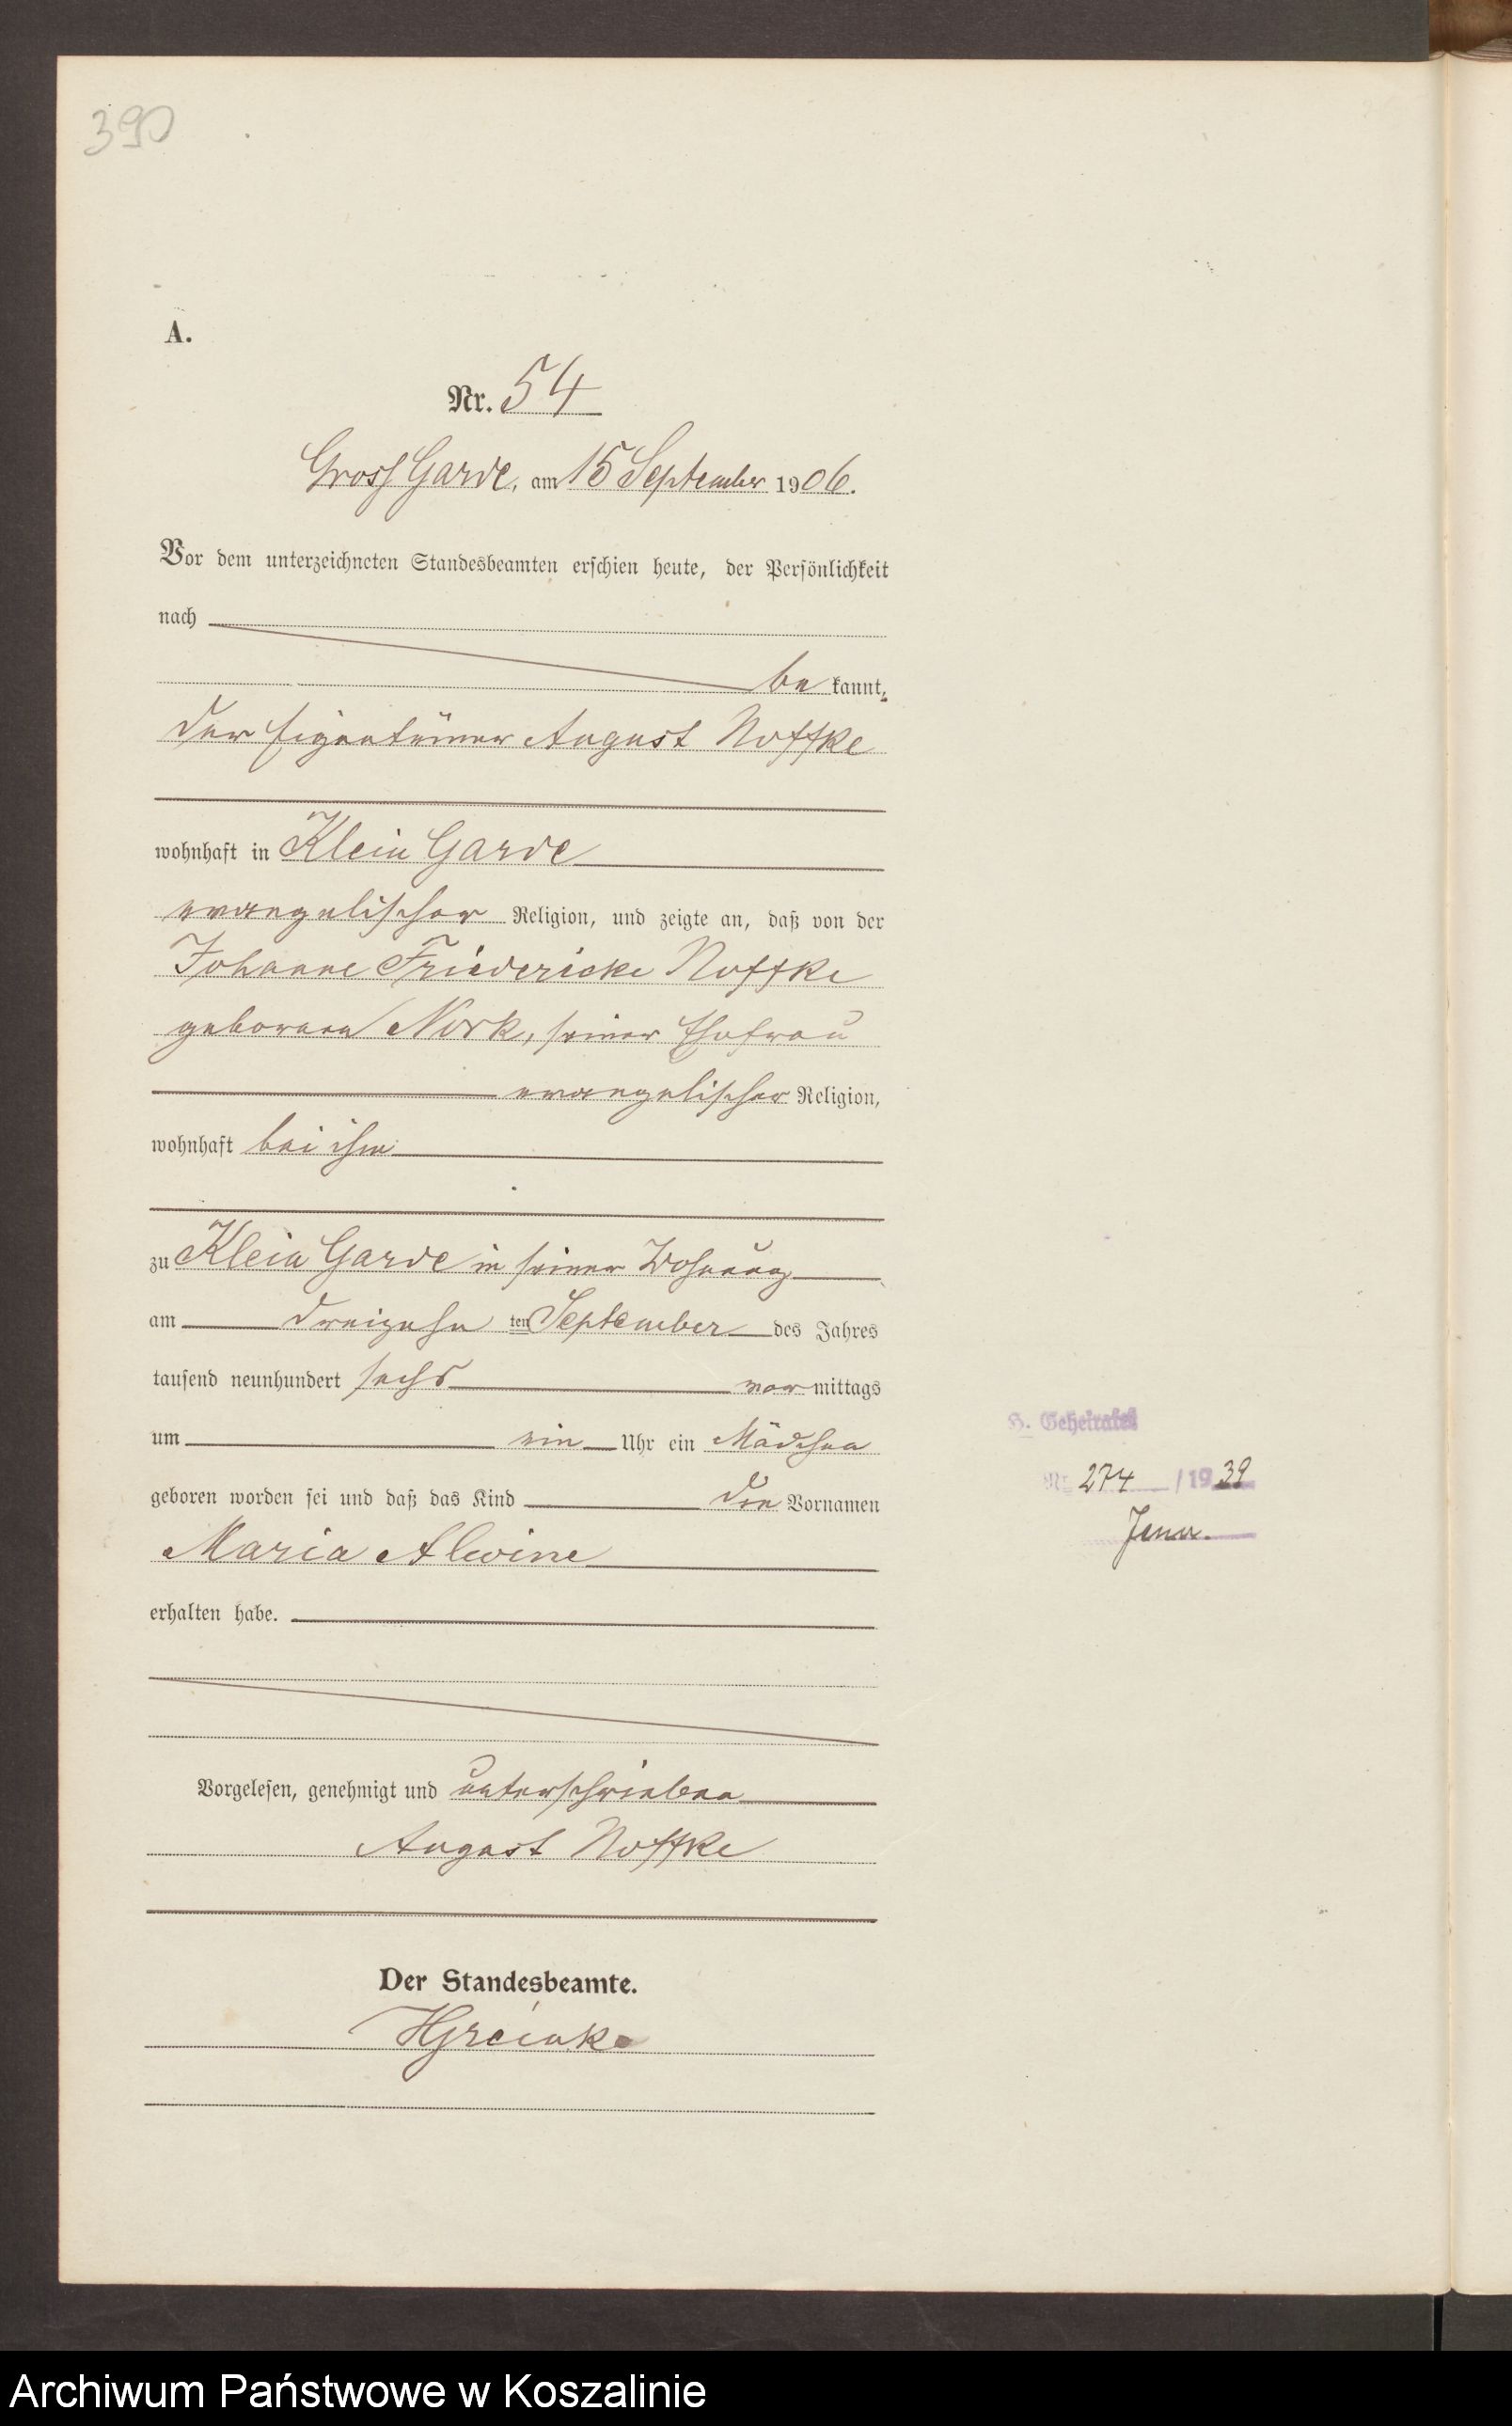 390
A.
Nr. 54
Gross Garde, am 15 September 1906.
Vor dem unterzeichneten Standesbeamten erschien heute, der Persönlichkeit
nach
be kannt,
der Eigentümer August Noffke
wohnhaft in Klein Garde
evangelischer Religion, und zeigte an, daß von der
Johanne Friedericke Noffke
geborenen Nork, seiner Ehefrau
evangelischer Religion,
wohnhaft bei ihm
zu Klein Garde in seiner Wohnung
am dreizehn ten September des Jahres
tausend neunhundert sechs vor mittags
um ein Uhr ein Mädchen
geboren worden sei und daß das Kind die Vornamen
Maria Alwine
erhalten habe.
Vorgelesen, genehmigt und unterschrieben
August Noffke
Der Standesbeamte.
Nr 274 / 1939
Archiwum Państwowe w Koszalinie